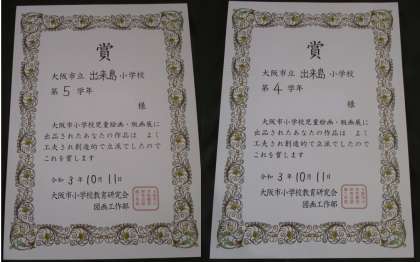 賞
大阪市立 出来島 小学校
第 5 学年
様
大阪市小学校児童絵画・版画展に
出品されたあなたの作品は よく
工夫され創造的で立派でしたので
これを賞します
令和 3 年 10 月 11 日
大阪市小学校教育研究会
図画工作部
賞
大阪市立 出来島 小学校
第 4 学年
様
大阪市小学校児童絵画・版画展に
出品されたあなたの作品は よく
工夫され創造的で立派でしたので
これを賞します
令和 3 年 10 月 11 日
大阪市小学校教育研究会
図画工作部